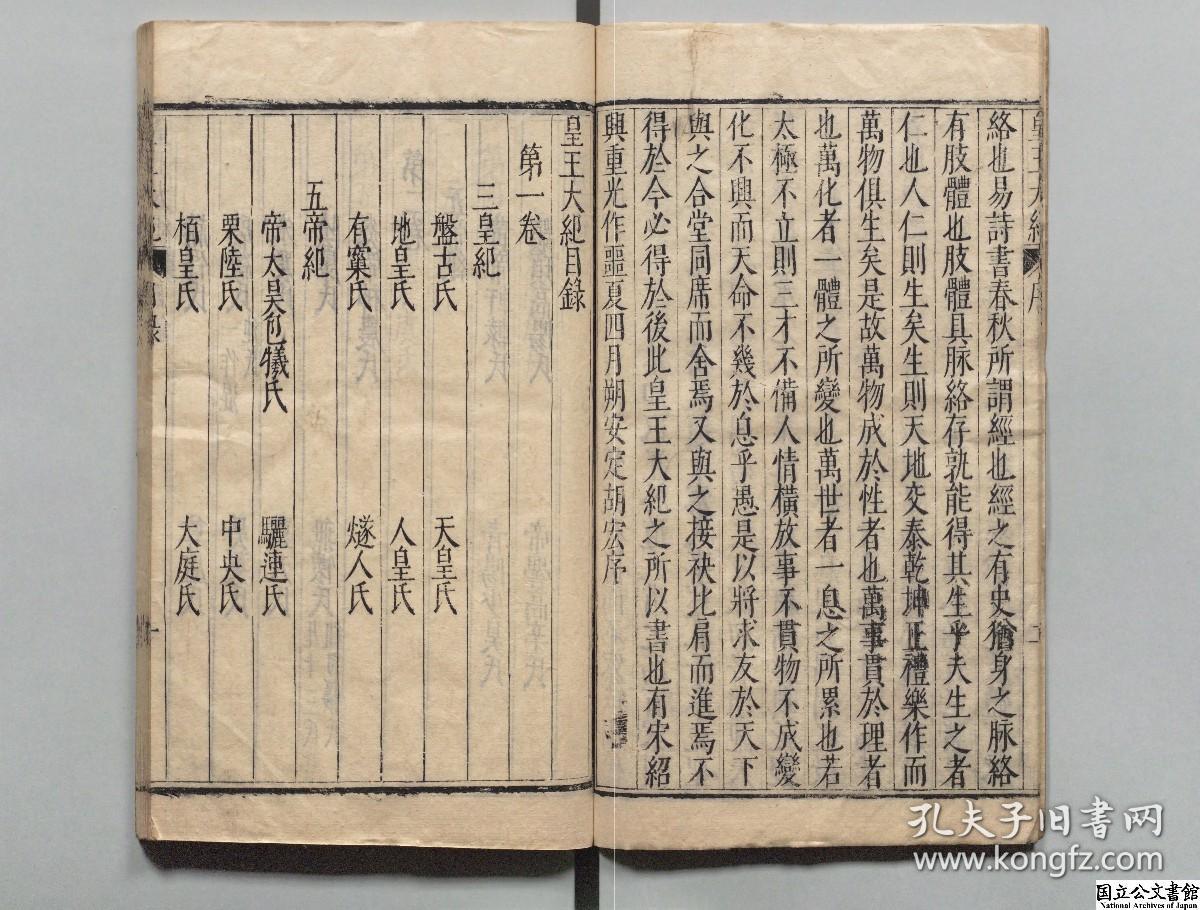 絡也易詩書春秋所謂經也經之有史猶身之脉絡
有肢體也肢體具脉絡存孰能得其生乎夫生之者
仁也人仁則生矣生則天地交泰乾坤正禮樂作而
萬物俱生矣是故萬物成於性者也萬事貫於理者
也萬化者一體之所變也萬世者一息之所累也若
太極不立則三才不備人情橫放事不貫物不成變
化不興而天命不幾於息乎愚是以將求友於天下
與之合堂同席而舍焉又與之接袂比肩而進焉不
得於今必得於後此皇王大紀之所以書也有宋紹
興重光作噩夏四月朔安定胡宏序
皇王大紀目錄
第一卷
三皇紀
盤古氏 天皇氏
地皇氏 人皇氏
有窠氏 燧人氏
五帝紀
帝太昊包犧氏 驪連氏
栗陸氏 中央氏
栢皇氏 大庭氏
孔夫子旧书网
www.kongfz.com
国立公文書館
National Archives of Japan